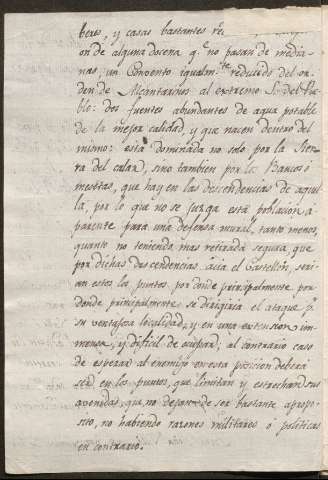 bere, y casas bastantes re
on de alguna docena q.e no pasan de media-
nas, un Convento igualm.te reducido del or-
den de Alcantarinos al extremo S. del Pue-
blo: dos fuentes abundantes de agua potable
de la mejor calidad, y que nacen dentro del
mismo: está dominada no solo por la Sier-
ra del calar, sino tambien por los Bancos ó
mesetas, que hay en las descendencias de aque-
lla, por lo que no se juzga esta poblacion a-
parente para una defensa mural, tanto menos,
quanto no teniendo mas retirada segura, que
por dichas descendencias ácia el Castellon, seri-
an estos los puntos, por donde principalmente por
donde principalmente se dirigiria el ataque p.r
su ventajosa localidad, y en una extension in-
mensa, y dificil de ocupar; al contrario caso
de esperar al enemigo en esta posicion deberá
ser en los puntos, que limitan y estrechan sus
avenidas, que no dejan de ser bastante apropo-
sito, no habiendo razones militares ó politicas
en contrario.